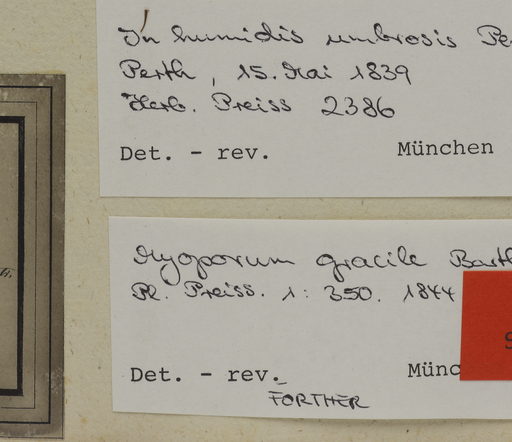 In humidis umbrosis Pe
Perth, 15. Mai 1839
Herb. Preiss 2386
Det. - rev. München
Myoporum gracile Barth
Pl. Preiss. 1: 350. 1844
Det. - rev. Münc
FORTHER